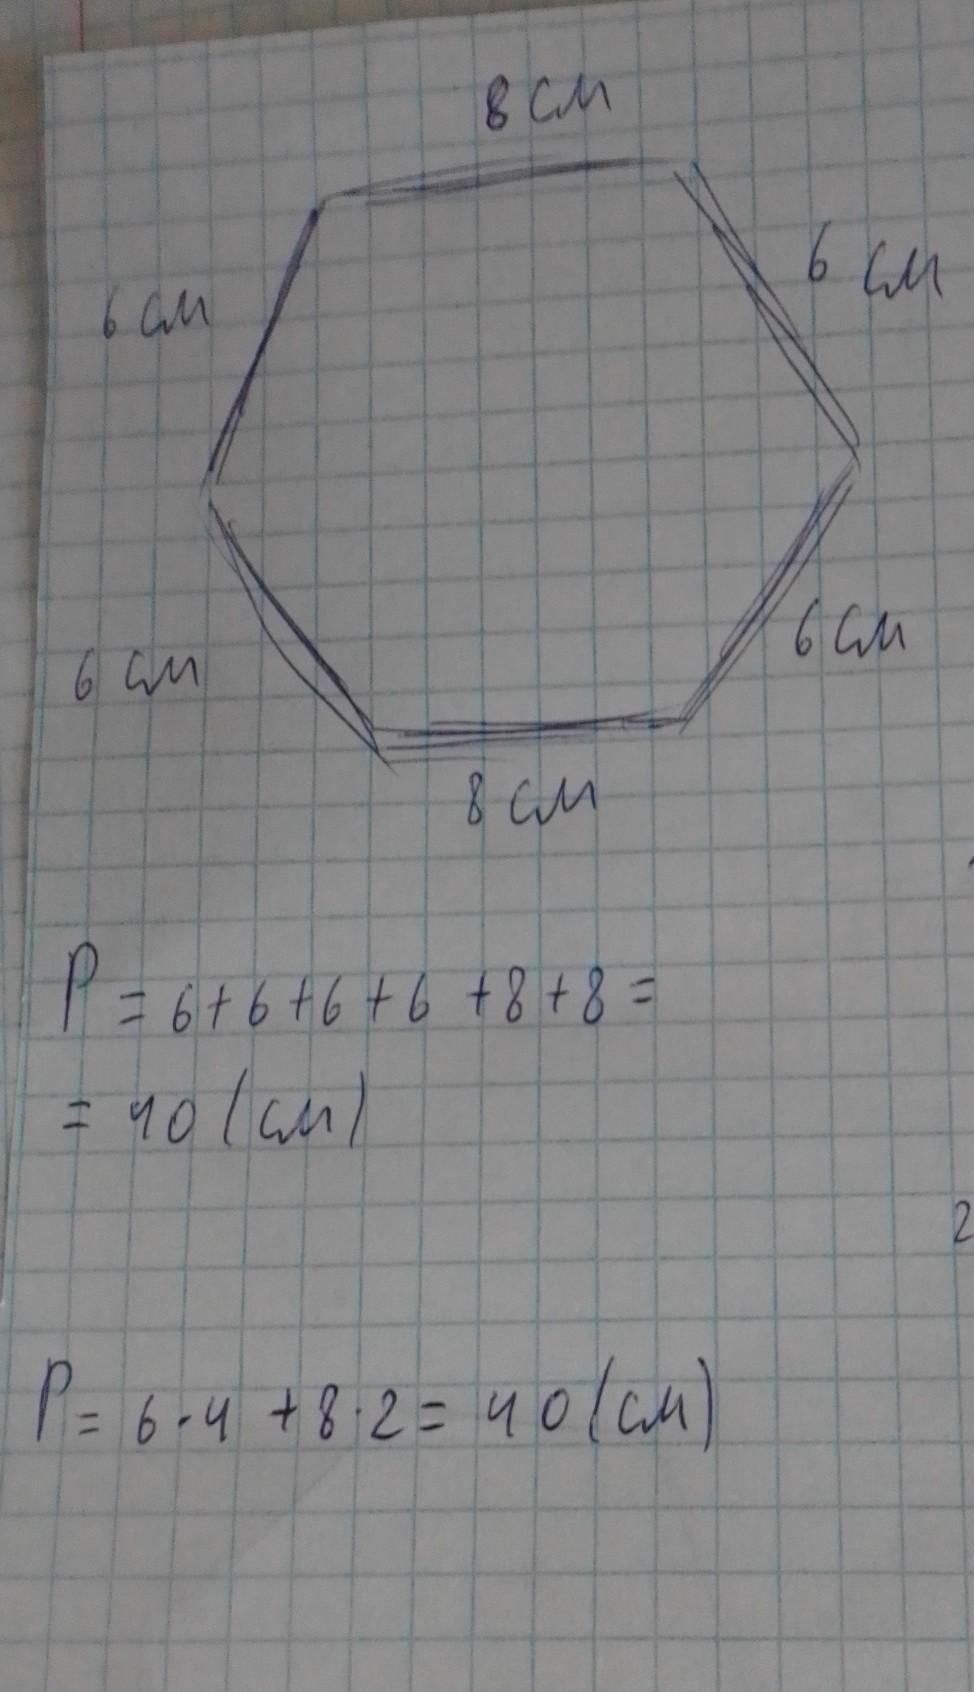 8 см
6 см
6 см
6 см
6 см
8 см
P = 6+6+6+6 +8+8 =
= 40 (см)
2
P = 6·4 +8·2 = 40 (см)